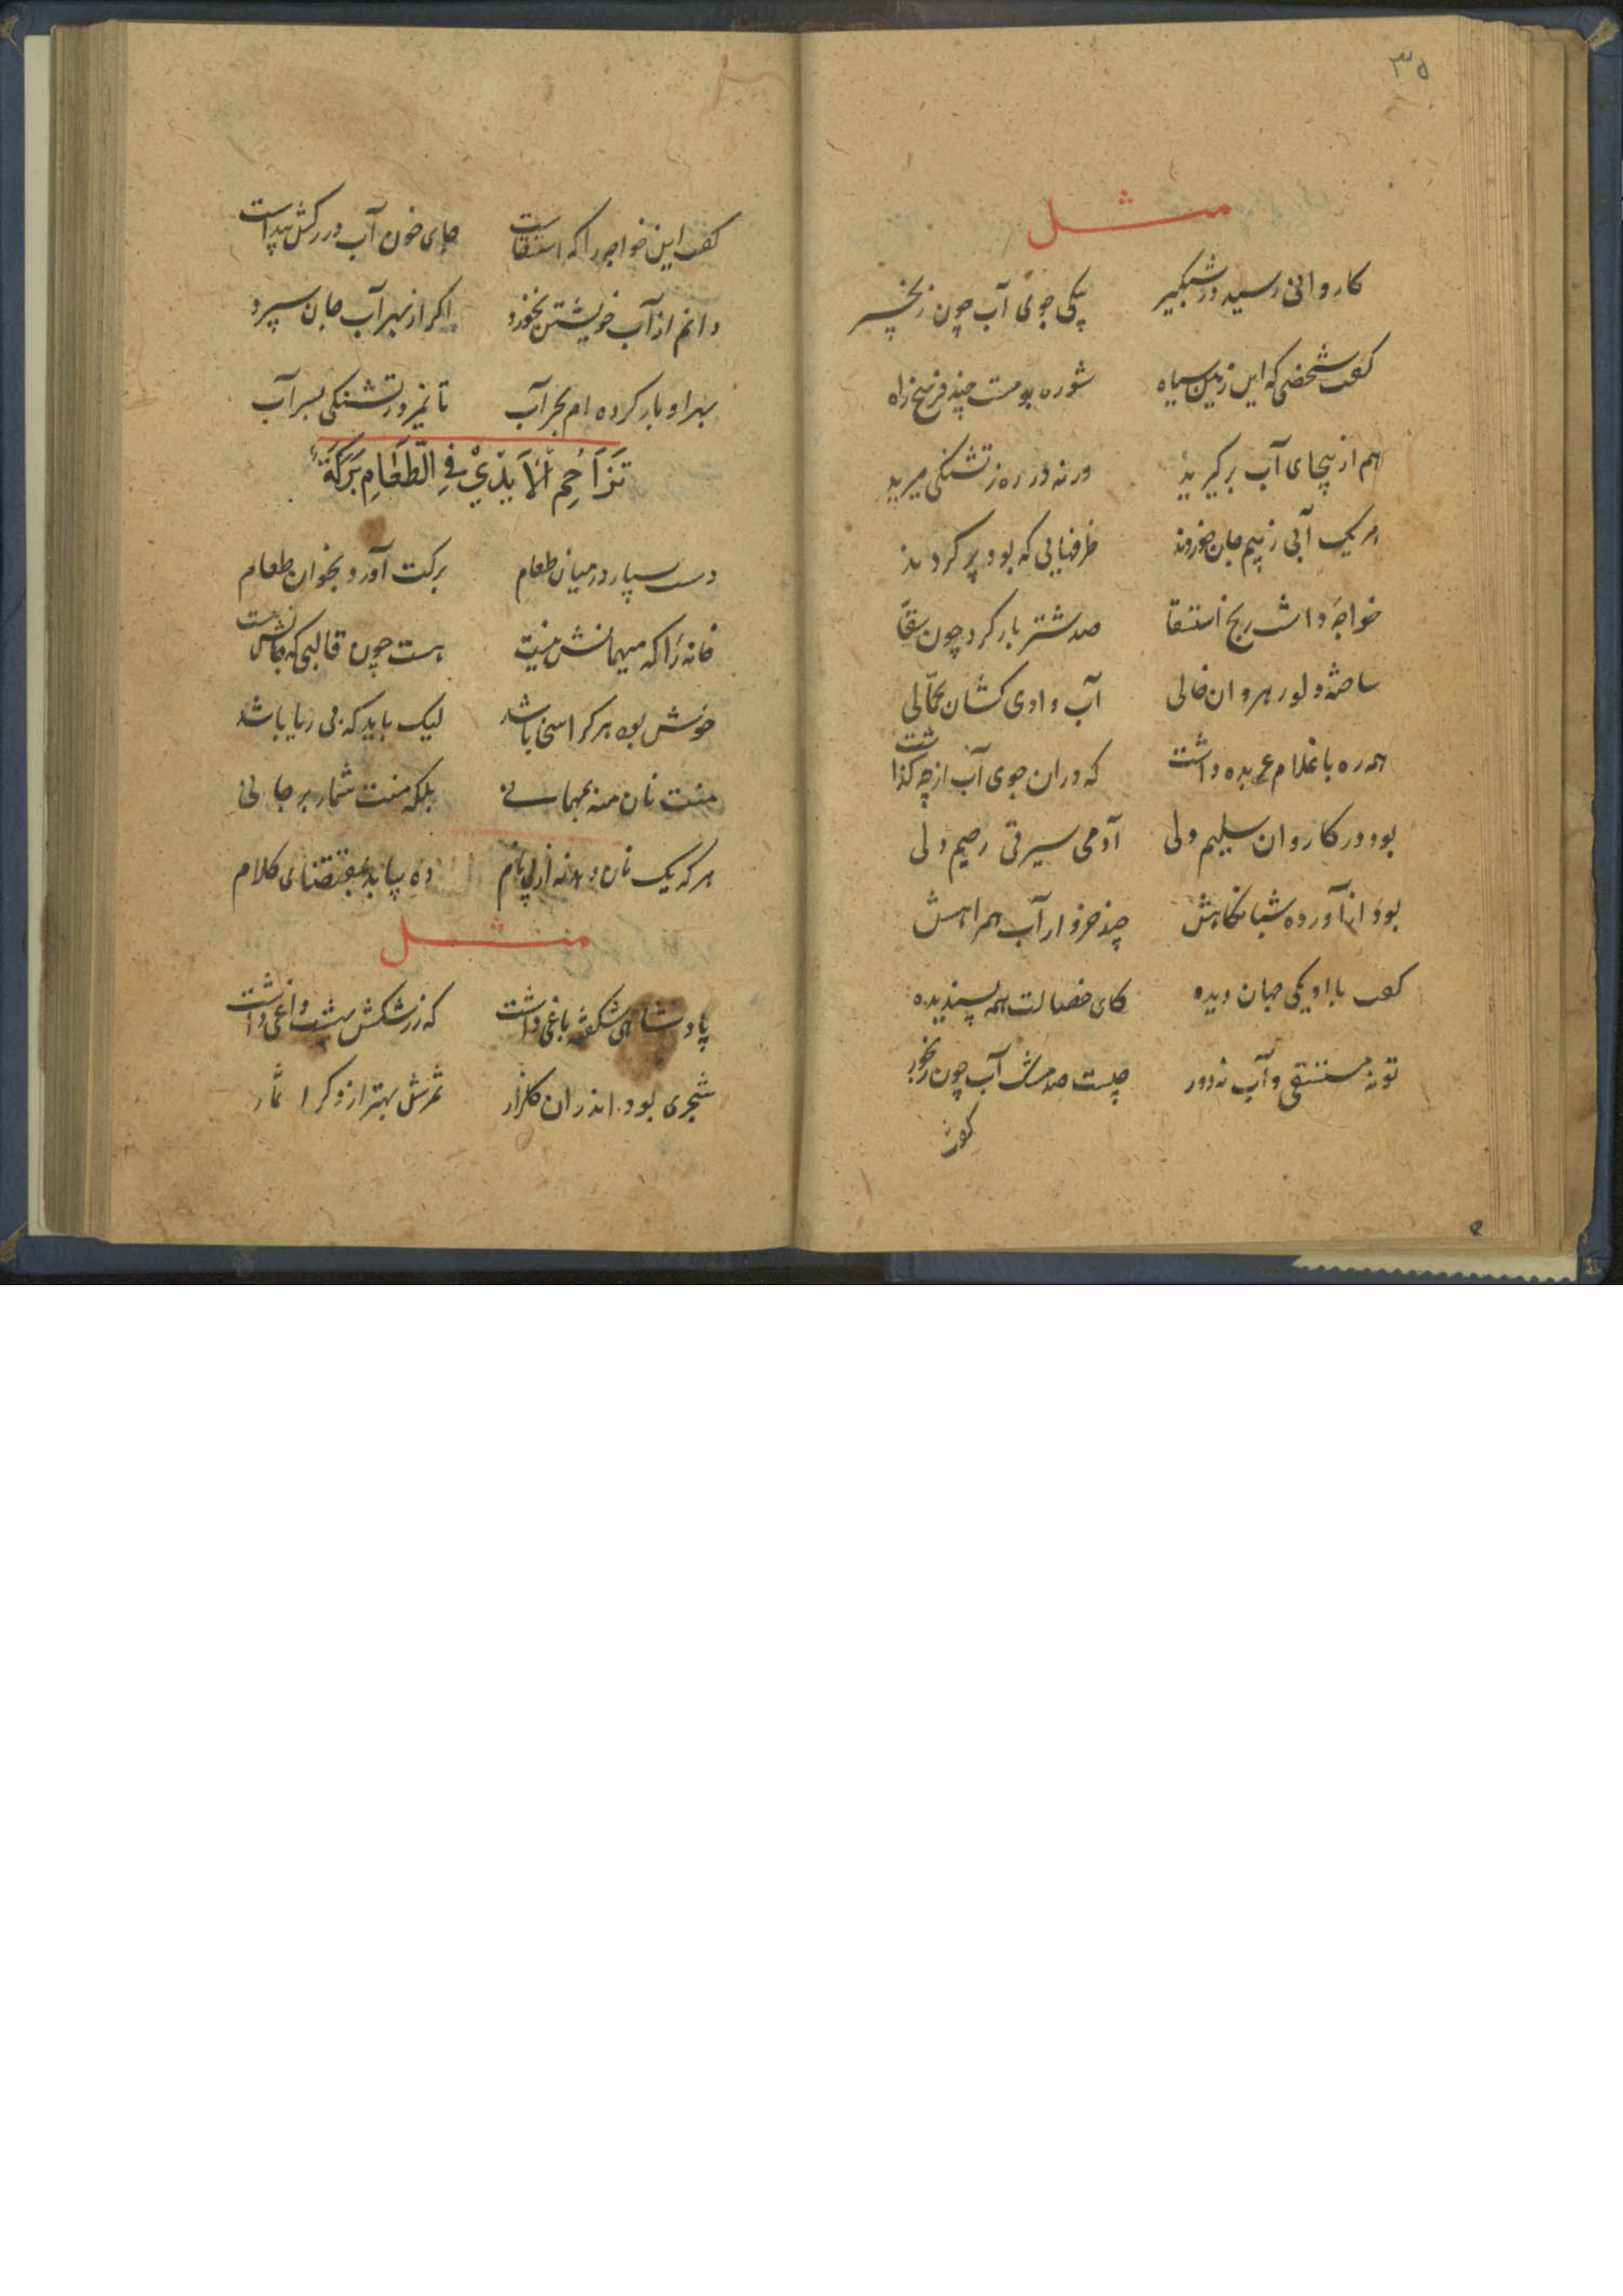 ۳۵
مثل
کاروانی رسید در شبگیر بیکی جوی آب چون زنجیر
گفت شخصی که این زمین سیاه شوره بومست چند فرسخ راه
هم از ینجای آب برگیرید ورنه در ره ز تشنگی میرید
هر یک آبی ز بیم جان خوردند ظرفهایی که بود پر کردند
خواجهٔ داشت رنج استسقا صد شتر بار کرد چون سقّا
ساخته دلو رهروان خالی آب وادی کشان بحمّالی
همه ره با غلام عربده داشت که دران جوی آب از چه گذاشت
بود در کاروان سلیم دلی آدمی سیرتی رحیم دلی
بود از آورده شبانگاهش چند خروار آب همراهش
گفت با او یکی جهان دیده کای خصالت همه پسندیده
تو نه مستسقی و آب نه دور چیست صد مشک آب چون رنجور
گفت
گفت این خواجه را که استسقاست جای خون آب در رگش پیداست
دانم از آب خویشتن نخورد اگر از بهر آب جان سپرد
بهر او بار کرده ام بحر آب تا نمیرد ز تشنگی بسر آب
تَزَاحُمِ الْاَیْدِیْ فِی الطَّعَامِ بَرَکَةٌ
دست بسیار در میان طعام برکت آورد بخوان طعام
خانه را که میهمانش نیست هست چون قالبی که جانش نیست
خوش بود هر کرا سخا باشد لیک باید که بی ریا باشد
منت نان منه بمهمانی بلکه منت شمار بر جانی
هر که یک نان دهد نه از پی نام ده بیابد بمقتضای کلام
مثل
پادشاهی شکفته باغی داشت که ز رشکش بهشت داغی داشت
شجری بود اندران گلزار ثمرش بهتر از دگر اثمار